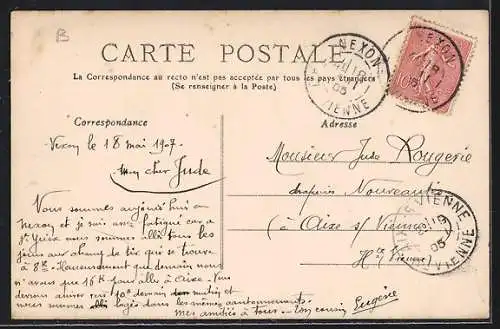 B
CARTE POSTALE
La Correspondance au recto n'est pas acceptée par tous les pays étrangers
(Se renseigner à la Poste)
NEXON
VIENNE
NEXON
Correspondance
Adresse
Nexon le 18 mai 1907
Mon cher Jude
Nous sommes aujourd'hui à
Nexon et je suis assez fatigué car à
St Yrieix nous sommes allés tous les
jours au champ de tir qui se trouve
à 8 K. Heureusement que demain nous
n'avons que 16 K pour aller à Aixe. Nous
devons arriver vers 10h demain matin et
nous sommes allés logés dans les mêmes cantonnements.
Mes amitiés à tous. Ton cousin Eugène
Monsieur Jude Rougerie
draperies Nouveautés
(à Aixe s/ Vienne
Hte Vienne)
VIENNE
VIENNE